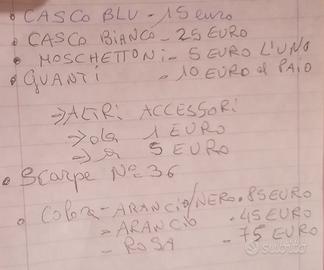 • CASCO BLU - 15 euro
• CASCO BIANCO - 25 EURO
• MOSCHETTONI - 5 EURO L'UNO
• GUANTI - 10 EURO al PAIO
→ ALTRI ACCESSORI
→ da 1 EURO
→ a 5 EURO
• Scarpe No 36
• Colore - ARANCIO/NERO . 85 EURO
- ARANCIO . 45 EURO
- ROSA - 75 EURO
subito